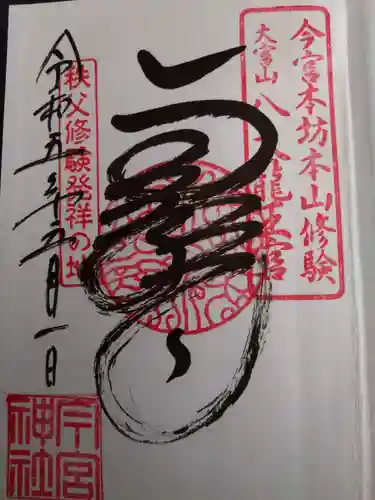 今宮本坊本山修験
大宮山
八大龍王宮
秩父修験発祥の地
令和五年五月一日
今宮
神社